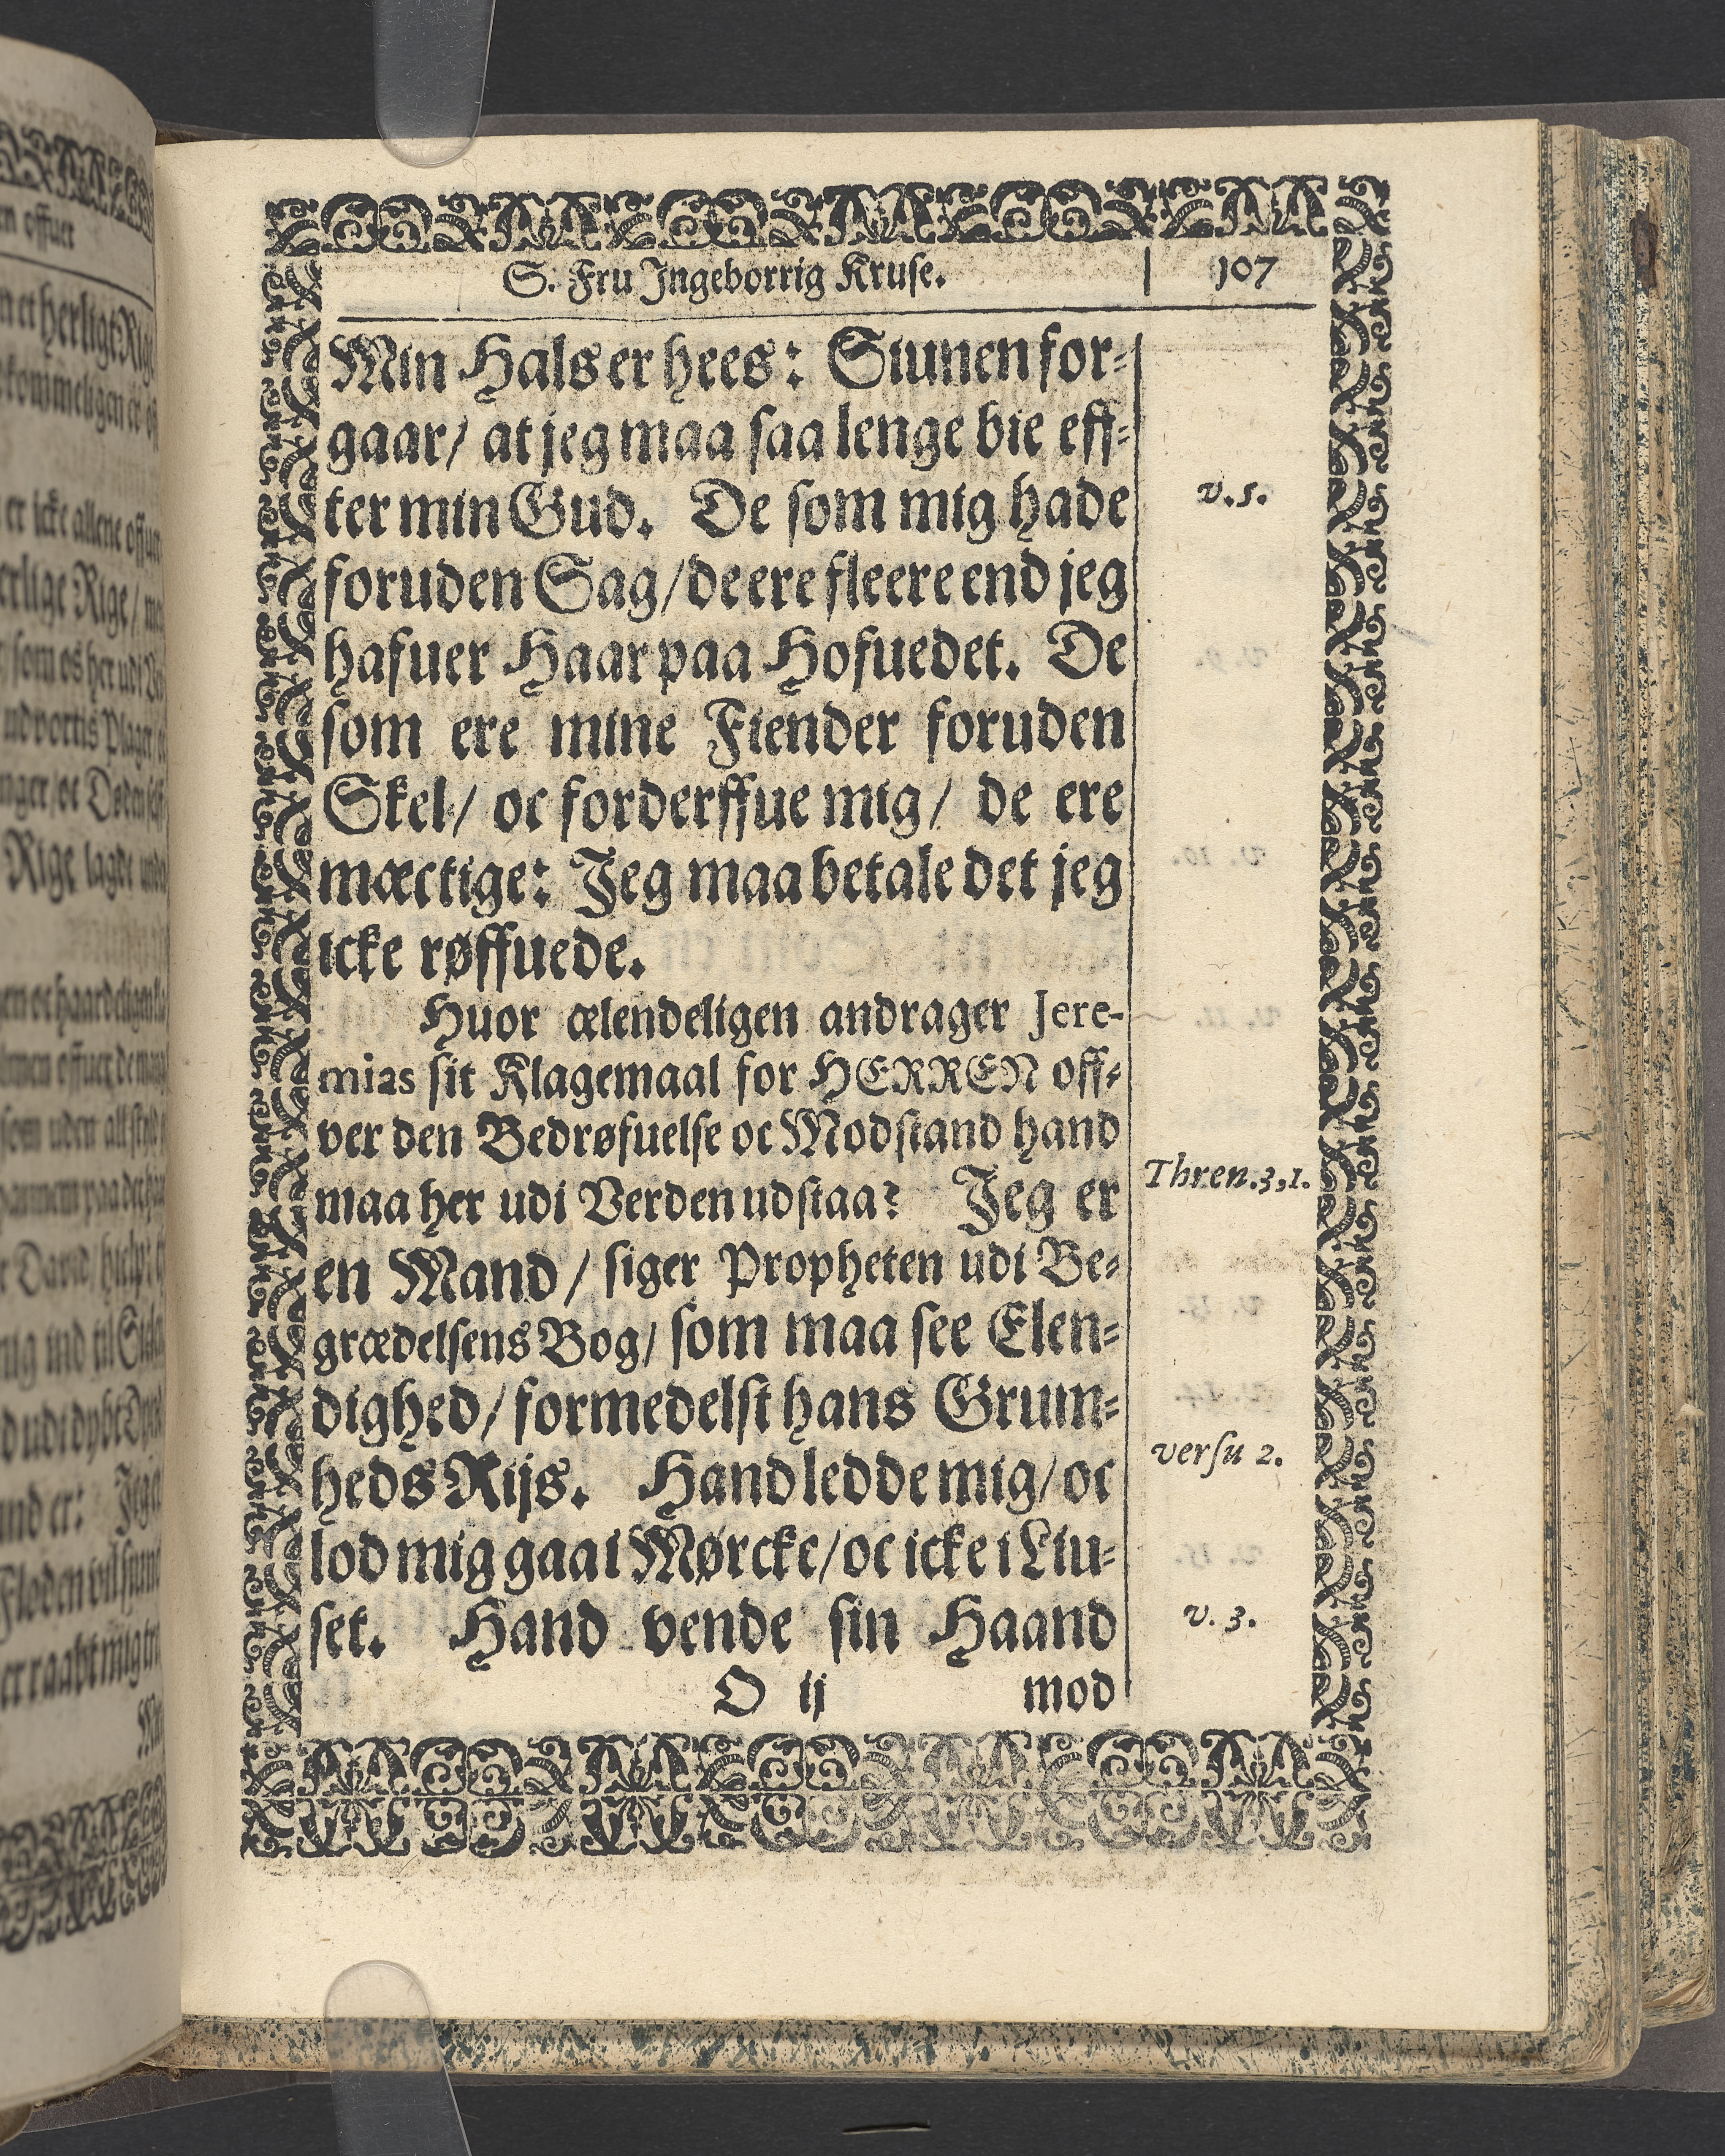 S. Fru Ingeborrig Kruse. 107
Min Hals er hees: Siunen for-
gaar/ at jeg maa saa lenge bie eff-
ter min Gud. De som mig hade
v.5.
foruden Sag/ de ere fleere end jeg
hafuer Haar paa Hofuedet. De
som ere mine Fiender foruden
Skel/ oc forderffue mig/ de ere
mæctige: Jeg maa betale det jeg
icke røffuede.
Huor ælendeligen andrager Jere-
mias sit Klagemaal for HERREN off-
ver den Bedrøfuelse oc Modstand hand
maa her udi Verden udstaa? Jeg er
Thren.3,1.
en Mand/ siger Propheten udi Be-
grædelsens Bog/ som maa see Elen-
dighed/ formedelst hans Grum-
heds Rijs. Hand ledde mig/ oc
versu 2.
lod mig gaa i Mørcke/ oc icke i Liu-
set. Hand vende sin Haand
v. 3.
O ij mod